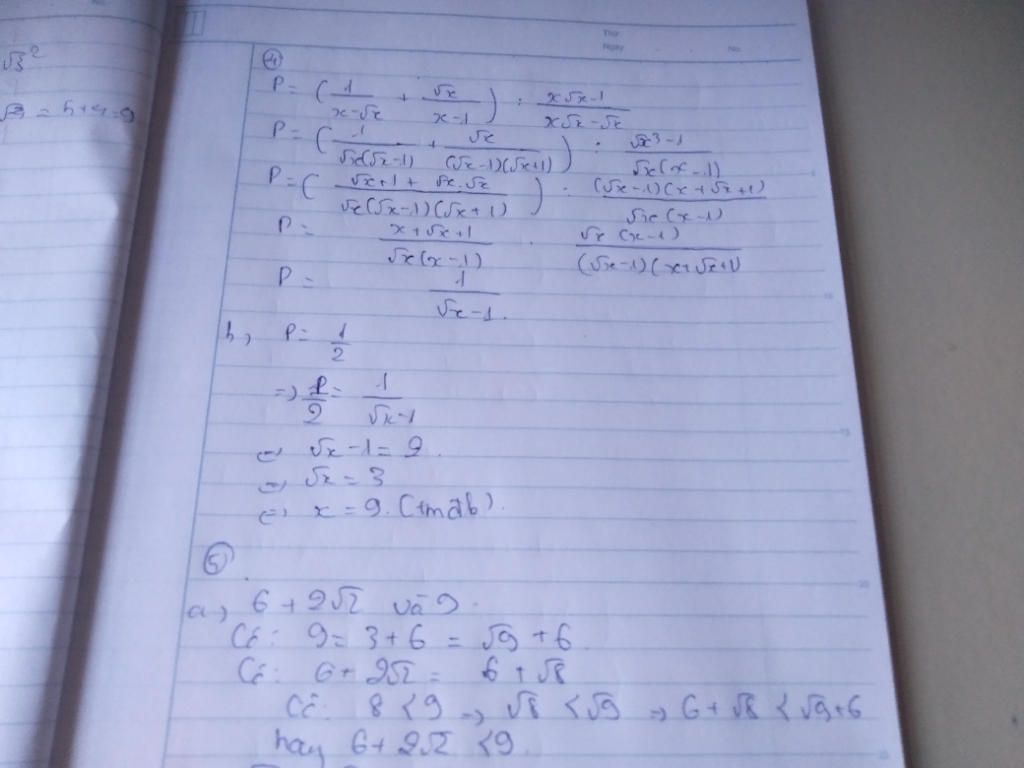 Thứ
Ngày No.
√3²
= 5+4=9
④
P = ( 1/(x-√x) + √x/(x-1) ) : (x√x-1)/(x√x-√x)
P = ( 1/(√x(√x-1)) + √x/((√x-1)(√x+1)) ) : (√x³-1)/(√x(x-1))
P = ( (√x+1+√x.√x)/(√x(√x-1)(√x+1)) ) : ((√x-1)(x+√x+1))/(√x(x-1))
P = (x+√x+1)/(√x(x-1)) . (√x(x-1))/((√x-1)(x+√x+1)
P = 1/(√x-1).
b, P = 1/2
=> 1/2 = 1/(√x-1)
<=> √x-1=2.
<=> √x = 3
<=> x = 9. (tmđb).
⑤
a, 6+2√2 và 9.
Có: 9=3+6 = √9+6
Có: 6+2√2 = 6+√8
Có: 8<9 => √8<√9 => 6+√8<√9+6
hay 6+2√2<9.